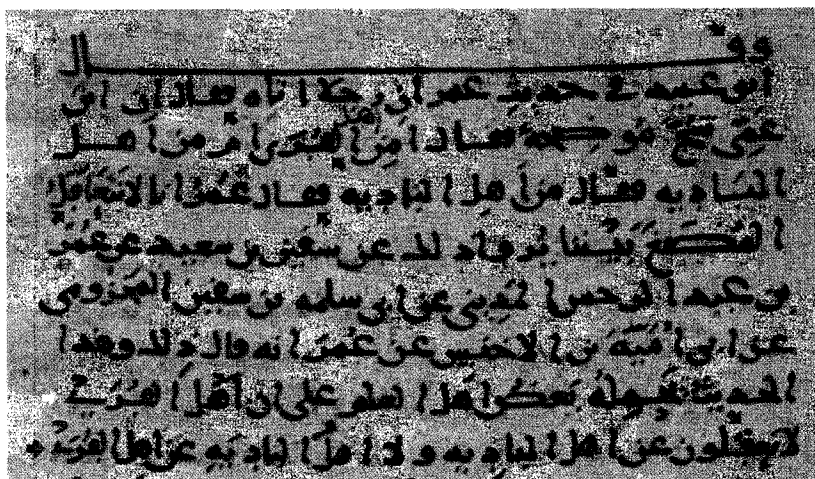 وقال
ابو عبيد في حديث عمر ان رجلا اتاه فقال ان ابن
عمى شج موضحة فقال امن اهل القرى ام من اهل
البادية فقال من اهل البادية فقال عمر انا لا نتعاقل
المضغ بيننا ذلك عن سفين بن سعيد عن عمر
بن عبد الرحمن المديني عن ابي سلمه بن سفين المخزومي
عن ابي امية بن الاخنس عن عمر انه قال ذلك وهذا
الحديث يحمله بعض اهل العلم على ان اهل القرى
لا يعقلون عن اهل البادية ولا اهل البادية عن اهل القرى